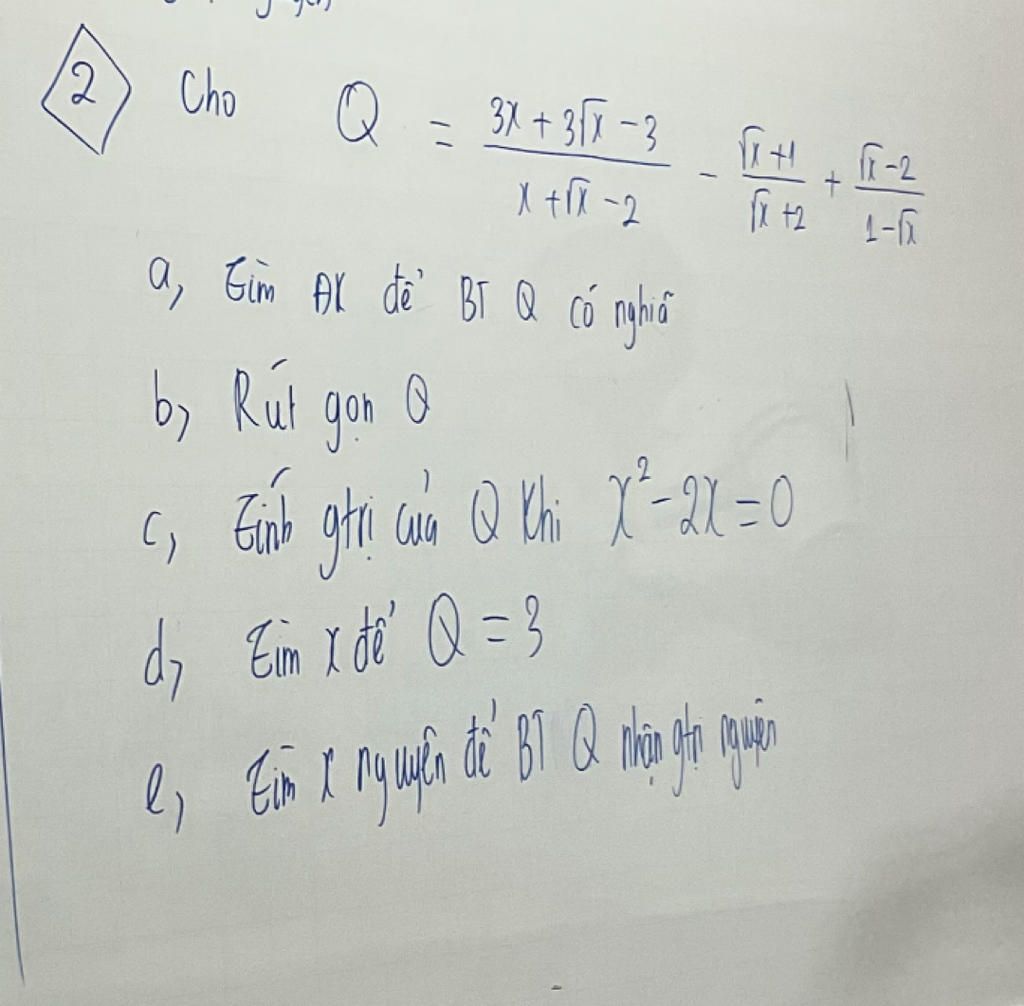 2 Cho Q = (3x + 3√x - 3)/(x + √x - 2) - (√x + 1)/(√x + 2) + (√x - 2)/(1 - √x)
a, Tìm ĐK để BT Q có nghĩa
b, Rút gọn Q
c, Tính gtrị của Q khi x² - 2x = 0
d, Tìm x để Q = 3
e, Tìm x nguyên để BT Q nhận gtrị nguyên